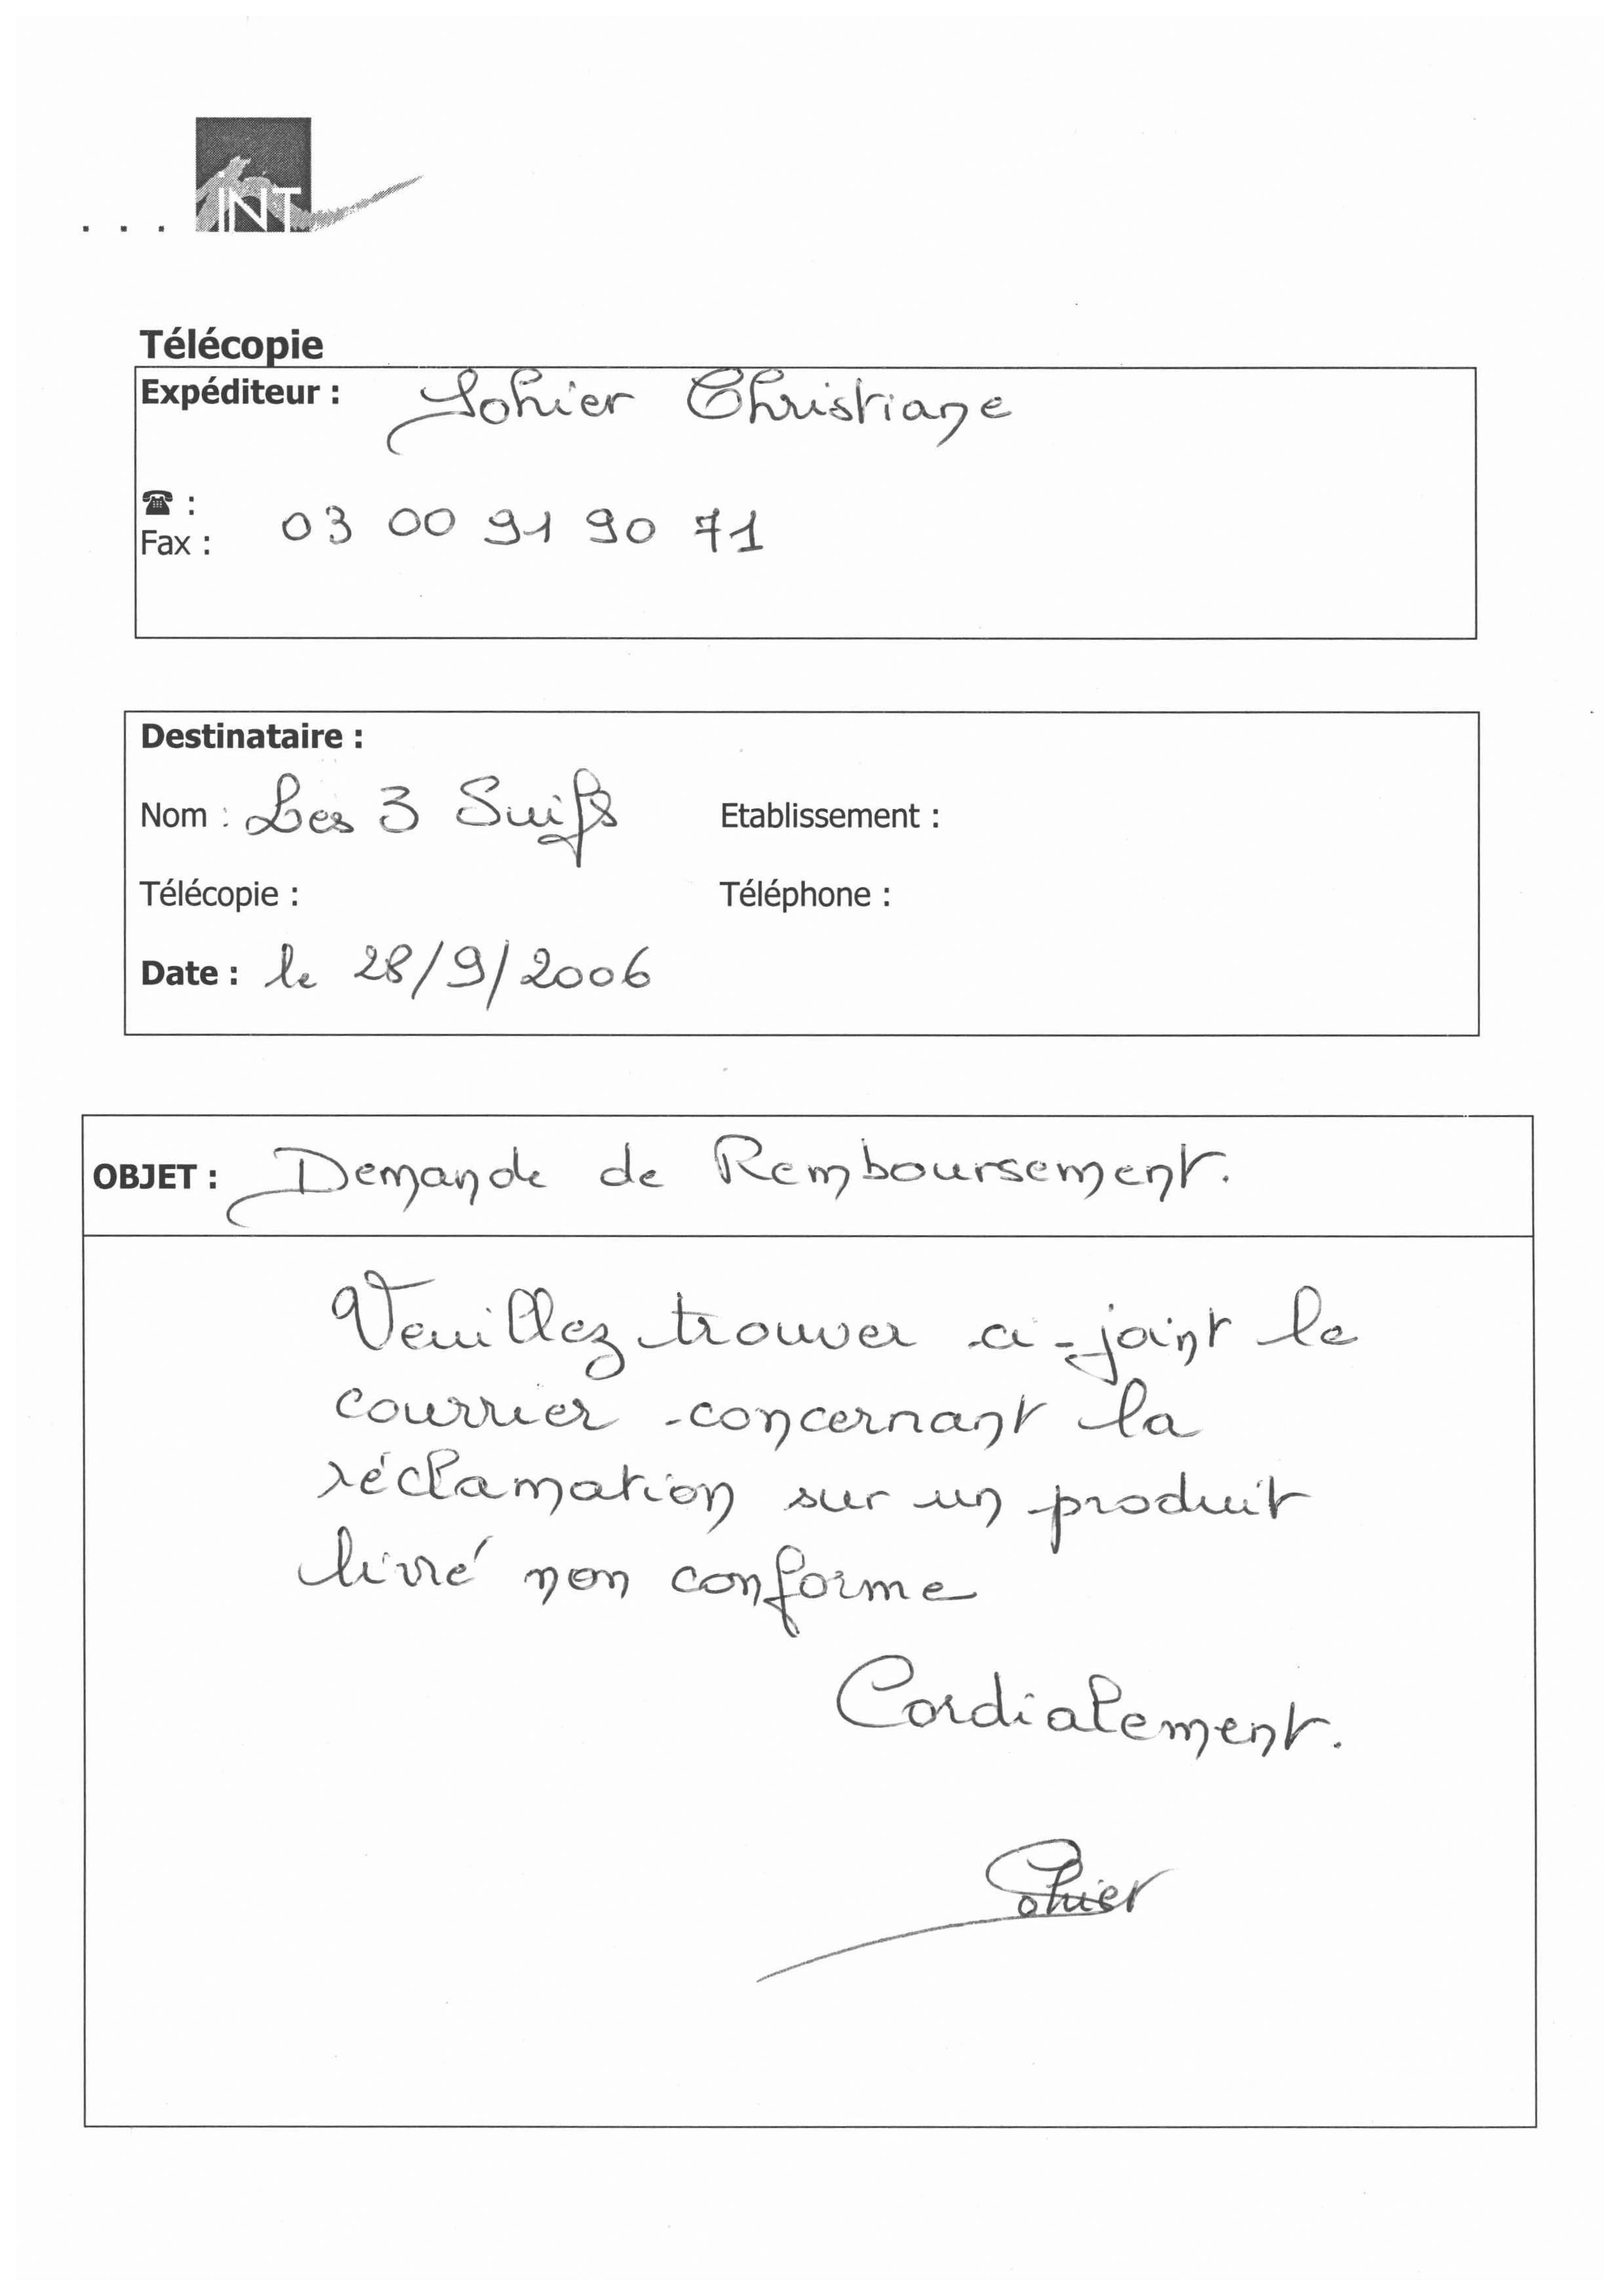 ... INT
Télécopie
Expéditeur : Sohier Christiane
☎ :
Fax : 03 00 91 90 71
Destinataire :
Nom : Les 3 Suifs Etablissement :
Télécopie : Téléphone :
Date : le 28/9/2006
OBJET : Demande de Remboursement.
Veuillez trouver ci-joint le
courrier concernant la
réclamation sur un produit
livré non conforme
Cordialement.
Sohier